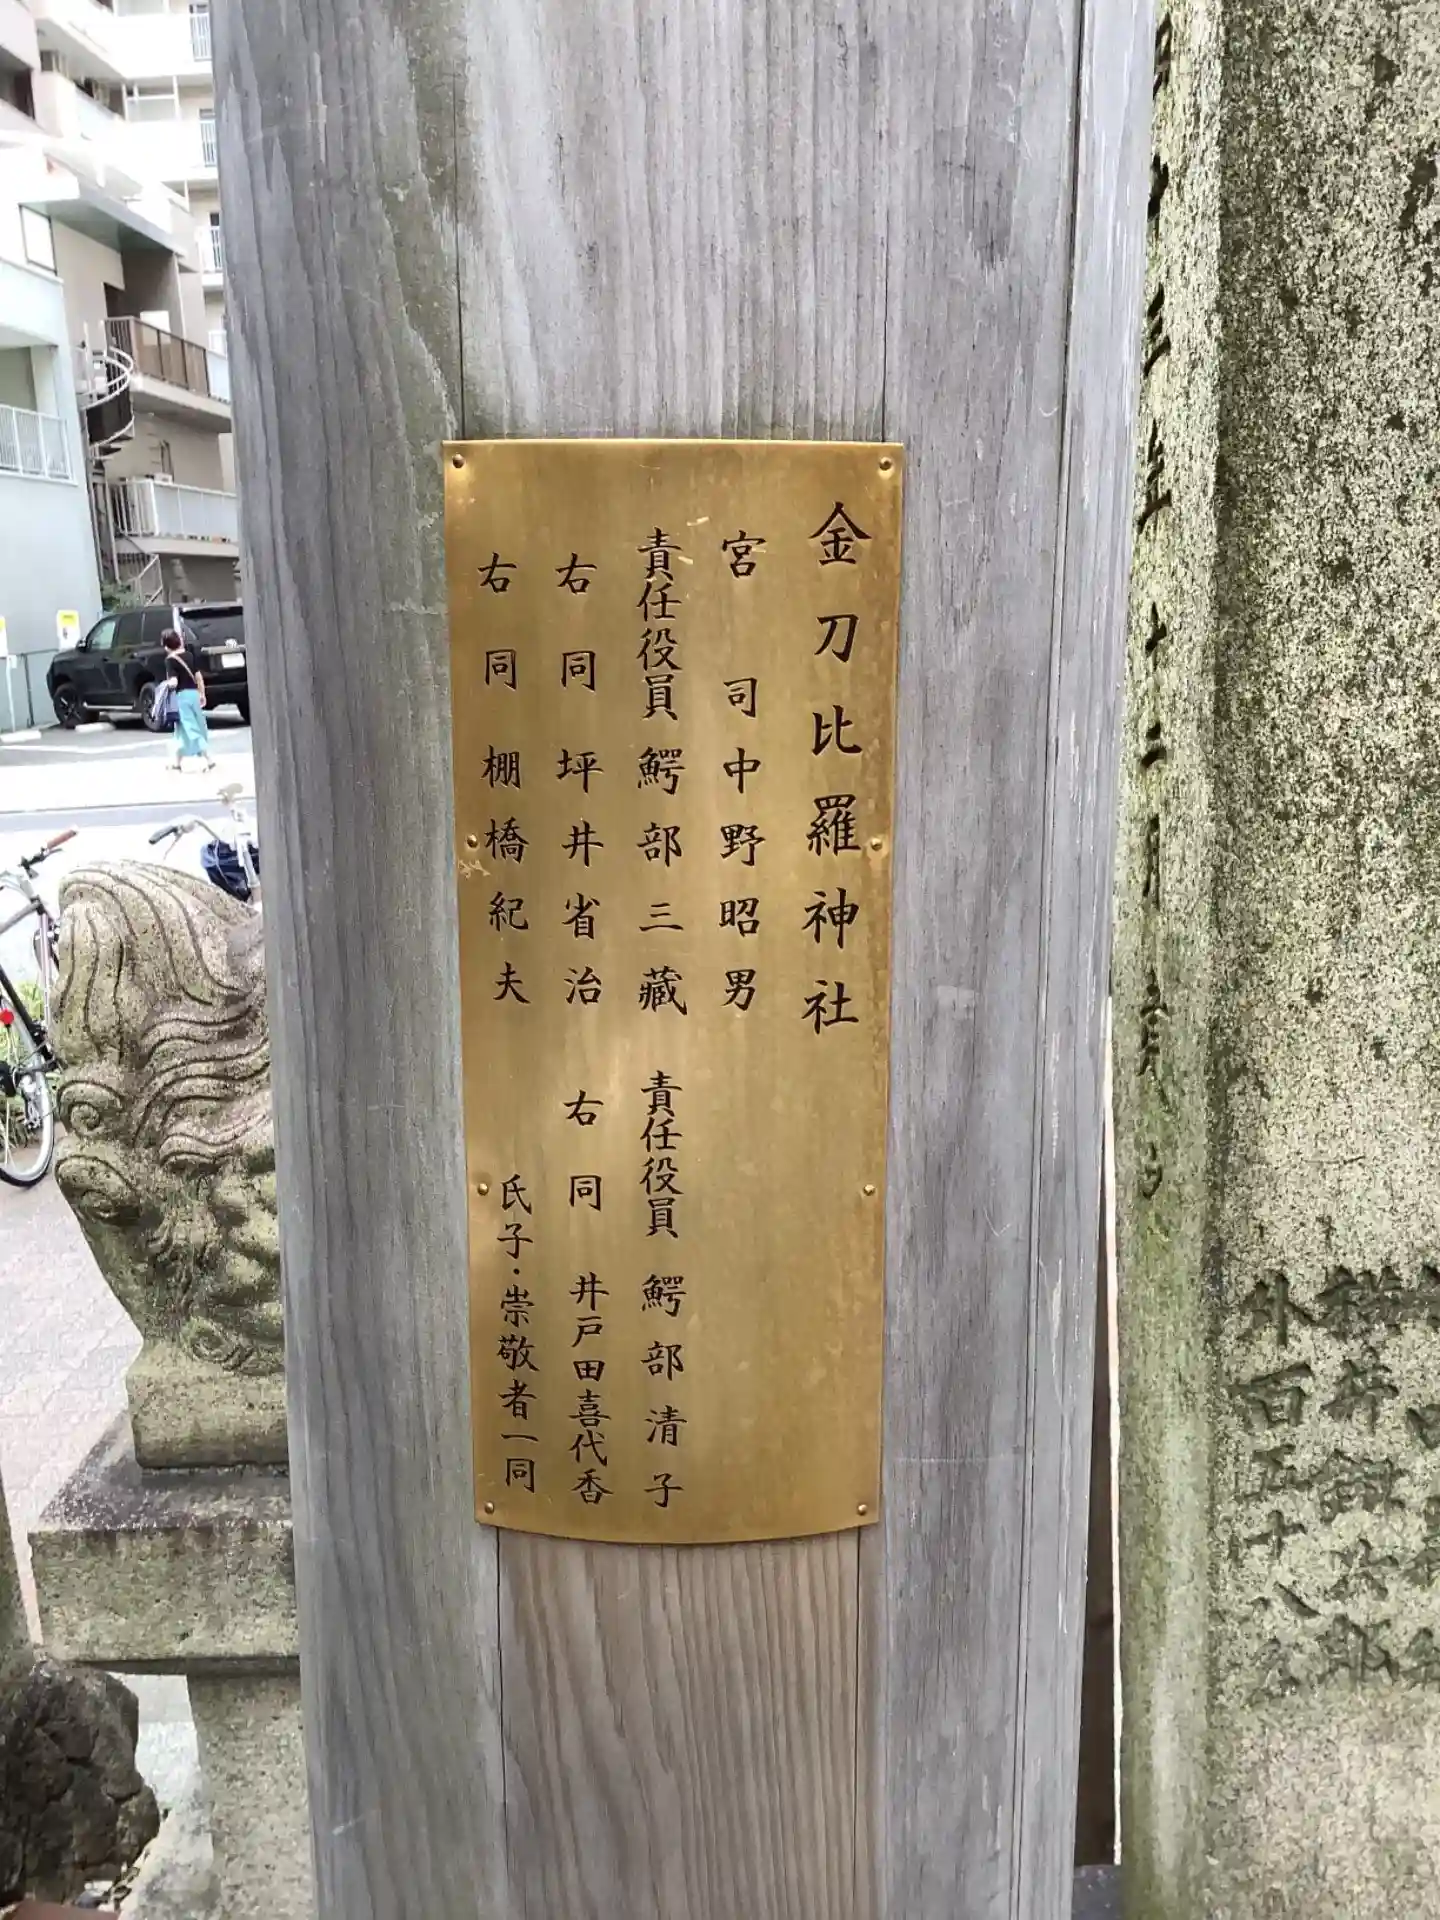 金刀比羅神社
宮 司 中野昭男
責任役員 鰐部三藏 責任役員 鰐部清子
右同 坪井省治 右同 井戸田喜代香
右同 棚橋紀夫 氏子・崇敬者一同
外百五十八名